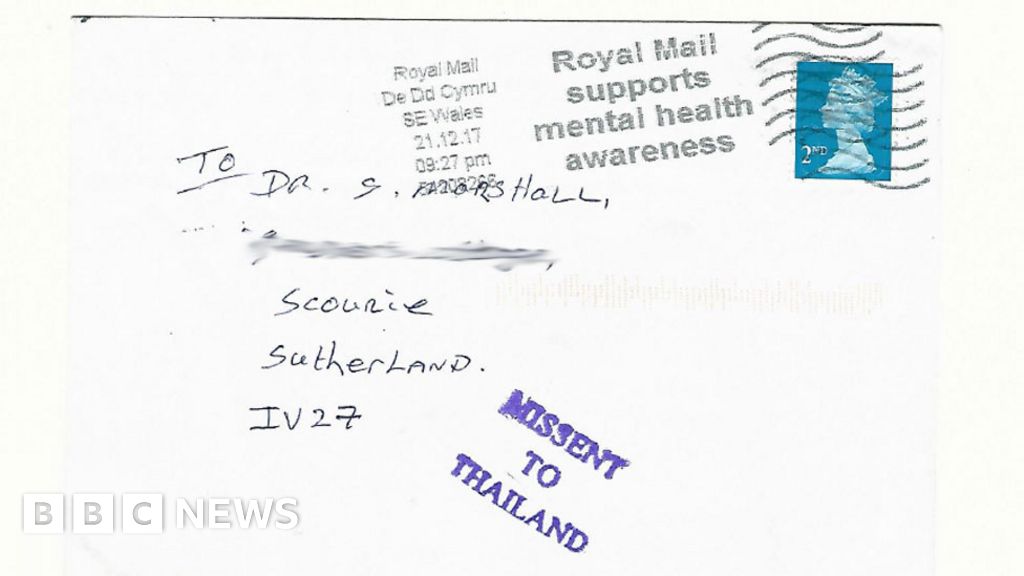 Royal Mail
De Dd Cymru
SE Wales
21.12.17
09:27 pm
Royal Mail
supports
mental health
awareness
2ND
TO
DR. S. MARSHALL,
Scourie
Sutherland.
IV27
MISSENT
TO
THAILAND
BBC NEWS